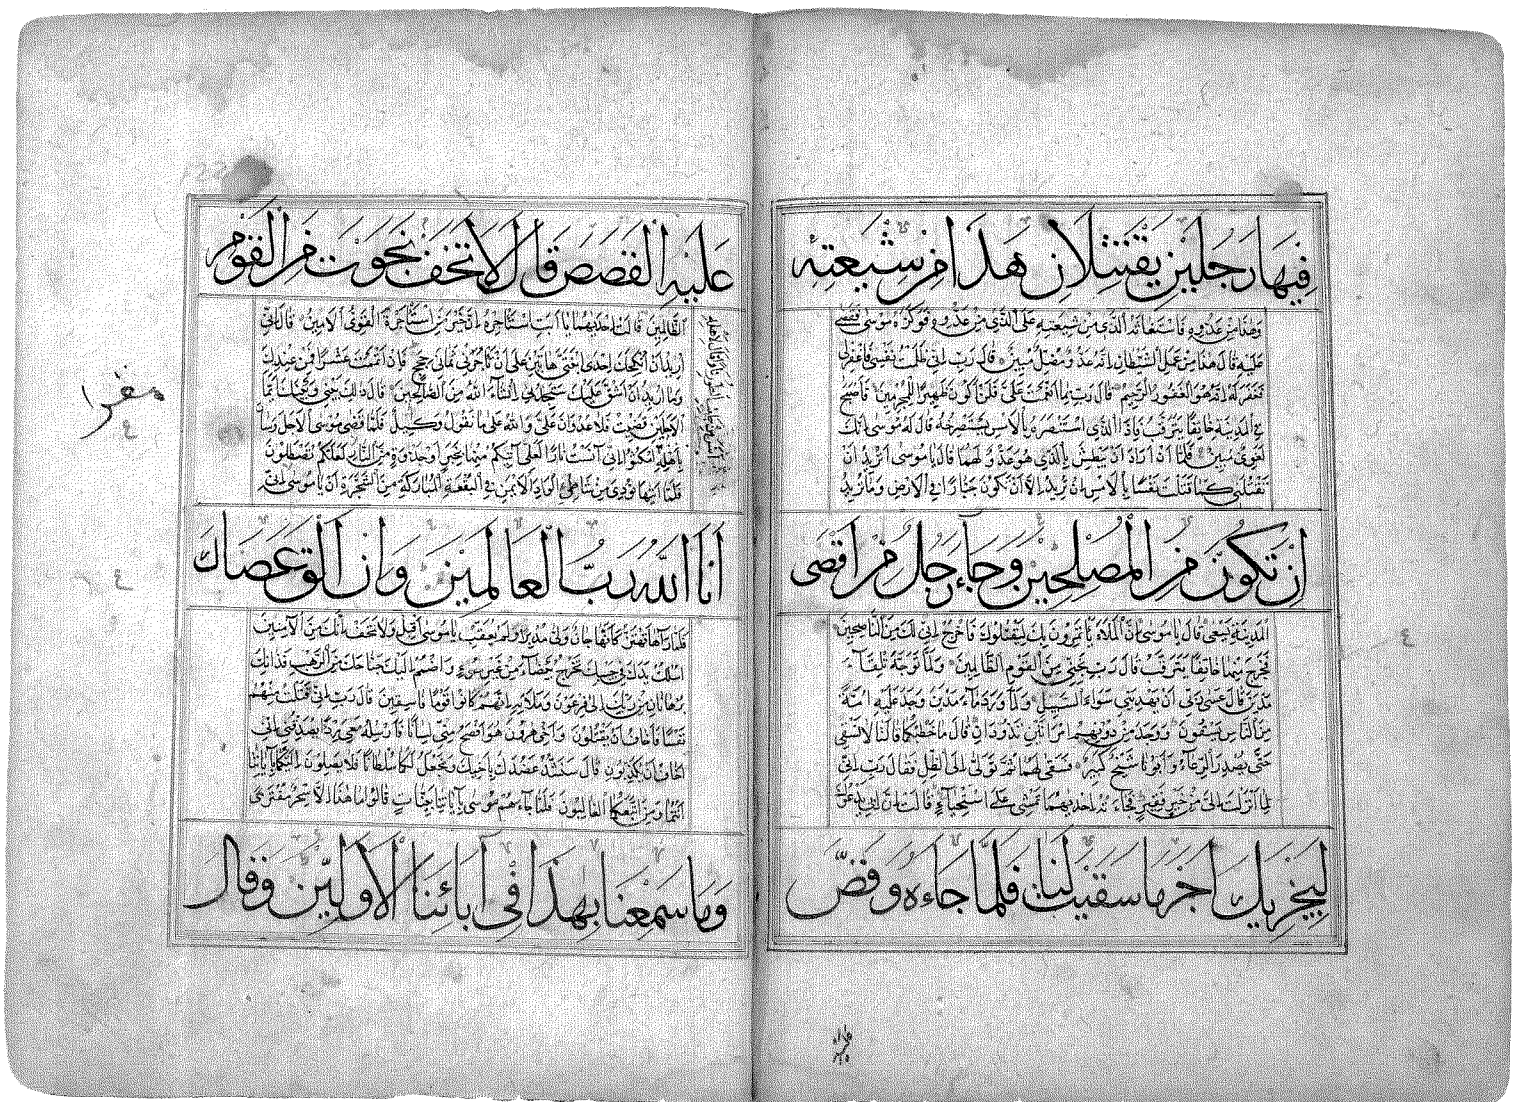 فيها رجلين يقتتلان هذا من شيعته
وهذا من عدوه فاستغاثه الذي من شيعته على الذي من عدوه فوكزه موسى فقضى
عليه قال هذا من عمل الشيطان انه عدو مضل مبين قال رب اني ظلمت نفسي فاغفر لي
فغفر له انه هو الغفور الرحيم قال رب بما انعمت علي فلن اكون ظهيرا للمجرمين فاصبح
في المدينة خائفا يترقب فاذا الذي استنصره بالامس يستصرخه قال له موسى انك
لغوي مبين فلما ان اراد ان يبطش بالذي هو عدو لهما قال يا موسى اتريد ان
تقتلني كما قتلت نفسا بالامس ان تريد الا ان تكون جبارا في الارض وما تريد
ان تكون من المصلحين وجاء رجل من اقصى
المدينة يسعى قال يا موسى ان الملاء ياتمرون بك ليقتلوك فاخرج اني لك من الناصحين
فخرج منها خائفا يترقب قال رب نجني من القوم الظالمين ولما توجه تلقاء
مدين قال عسى ربي ان يهديني سواء السبيل ولما ورد ماء مدين وجد عليه امة
من الناس يسقون ووجد من دونهم امراتين تذودان قال ما خطبكما قالتا لا نسقي
حتى يصدر الرعاء وابونا شيخ كبير فسقى لهما ثم تولى الى الظل فقال رب اني
لما انزلت الي من خير فقير فجاءته احديهما تمشي على استحياء قالت ان ابي يدعوك
ليجزيك اجر ما سقيت لنا فلما جاءه وقص
عليه
عليه القصص قال لا تخف نجوت من القوم
الظالمين قالت احديهما يا ابت استاجره ان خير من استاجرت القوي الامين قال اني
اريد ان انكحك احدى ابنتي هاتين على ان تاجرني ثماني حجج فان اتممت عشرا فمن عندك
وما اريد ان اشق عليك ستجدني ان شاء الله من الصالحين قال ذلك بيني وبينك ايما
الاجلين قضيت فلا عدوان علي والله على ما نقول وكيل فلما قضى موسى الاجل وسار
باهله
آنس من جانب الطور نارا قال لاهله
امكثوا اني آنست نارا لعلي آتيكم منها بخبر او جذوة من النار لعلكم تصطلون
فلما اتيها نودي من شاطئ الواد الايمن في البقعة المباركة من الشجرة ان يا موسى اني
انا الله رب العالمين وان الق عصاك
فلما رآها تهتز كانها جان ولى مدبرا ولم يعقب يا موسى اقبل ولا تخف انك من الآمنين
اسلك يدك في جيبك تخرج بيضاء من غير سوء واضمم اليك جناحك من الرهب فذانك
برهانان من ربك الى فرعون وملائه انهم كانوا قوما فاسقين قال رب اني قتلت منهم
نفسا فاخاف ان يقتلون واخي هرون هو افصح مني لسانا فارسله معي ردءا يصدقني اني
اخاف ان يكذبون قال سنشد عضدك باخيك ونجعل لكما سلطانا فلا يصلون اليكما بآياتنا
انتما ومن اتبعكما الغالبون فلما جاءهم موسى بآياتنا بينات قالوا ما هذا الا سحر مفترى
وما سمعنا بهذا في آبائنا الاولين وقال
٤
٤
٤